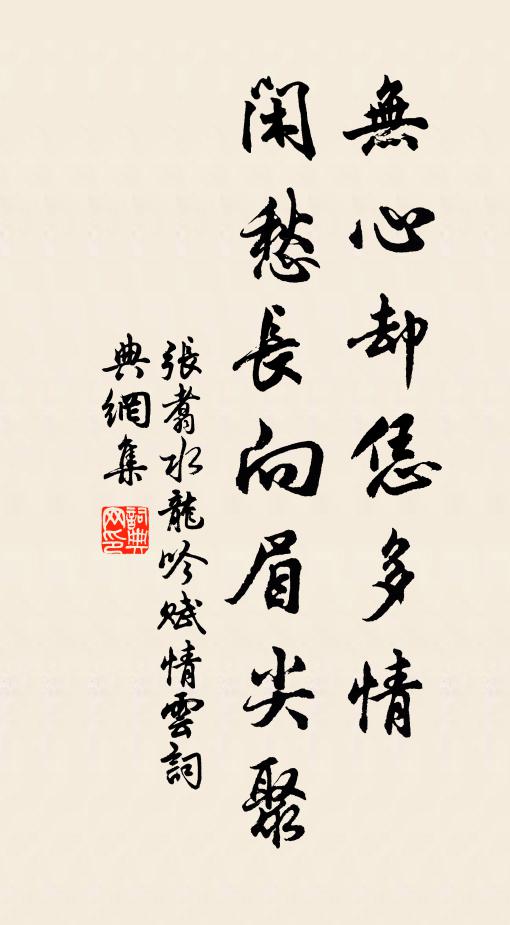 無心却恁多情
閑愁長向眉尖聚
張翥水龍吟賦情雲詞
典網集
詞典网印